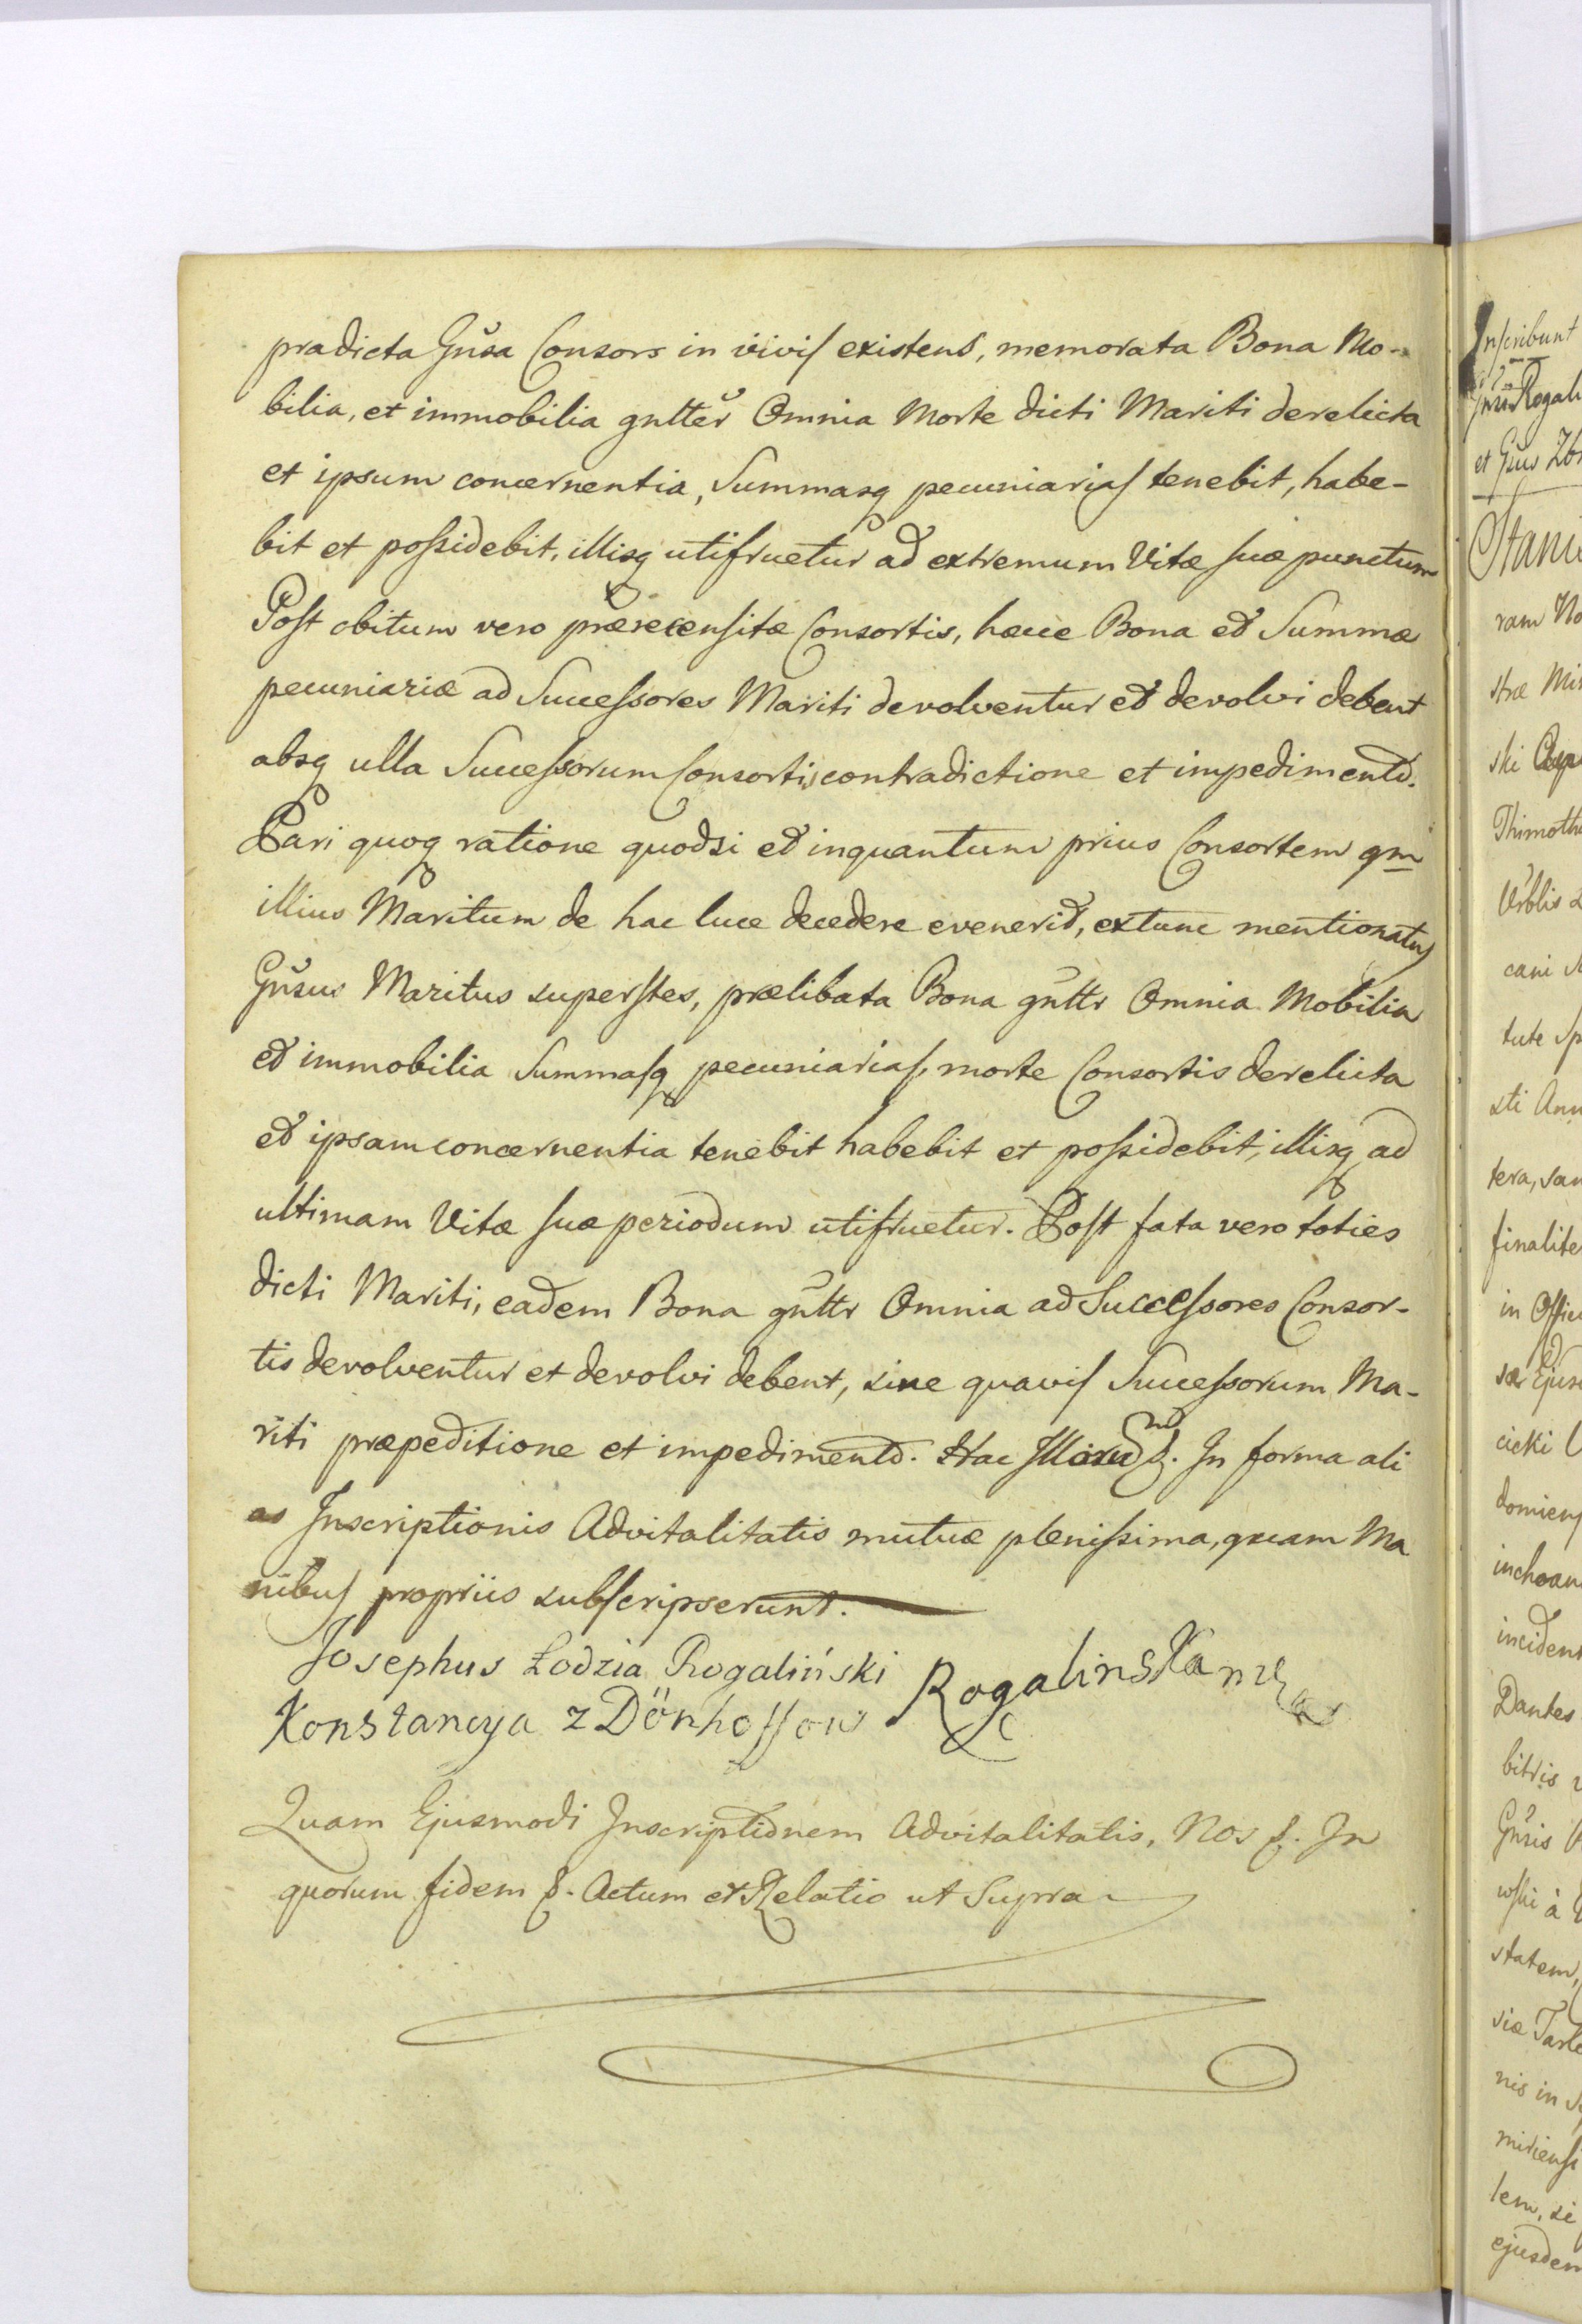 prædicta Gn̄sa Consors in vivis existens, memorata Bona Mo-
bilia, et immobilia gnlter Omnia Morte dicti Mariti derelicta
et ipsum concernentia, Summasq pecuniarias tenebit, habe-
bit et possidebit, illisq utifruetur ad extremum Vitæ suæ punctum
Post obitum vero prærecensitæ Consortis, hæcce Bona et Summæ
pecuniariæ ad Successores Mariti devolventur et devolvi debent
absq ulla Successorum Consortis contradictione et impedimento.
Pari quoq ratione quodsi et inquantum prius Consortem qm
illius Maritum de hac luce decedere evenerit, extunc mentionatus
Gn̄sus Maritus superstes, prælibata Bona gnltr Omnia Mobilia
et immobilia Summasq pecuniarias, morte Consortis derelicta
et ipsam concernentia tenebit habebit et possidebit, illisq ad
ultimam Vitæ suæ periodum utifruetur. Post fata vero toties
dicti Mariti, eadem Bona gnltr Omnia ad Successores Consor-
tis devolventur et devolvi debent, sine quavis Successorum Ma-
riti præpeditione et impedimento. Hac In forma ali
as Inscriptionis Advitalitatis mutuæ plenissima, quam Ma
nibus propriis subscripserunt.
Josephus Łodzia Rogaliński
Konstancya z Dönhoffow Rogalinska
Quam Ejusmodi Inscriptionem Advitalitatis, Nos &. In
quorum fidem &. Actum et Relatio ut Supra
Inscribunt
Rogali
et Gn̄us Zbi
Stani
ram No
stræ Mi
ski
Thimoth
cani
tute Sp
sti Ann
tera, san
finalite
in Offic
cicki
domiens
inchoan
incident
Dantes
bitris
Gn̄sis
wski à
statem,
siæ Tarł
nis in
miriensi
lem, si
ejusdem